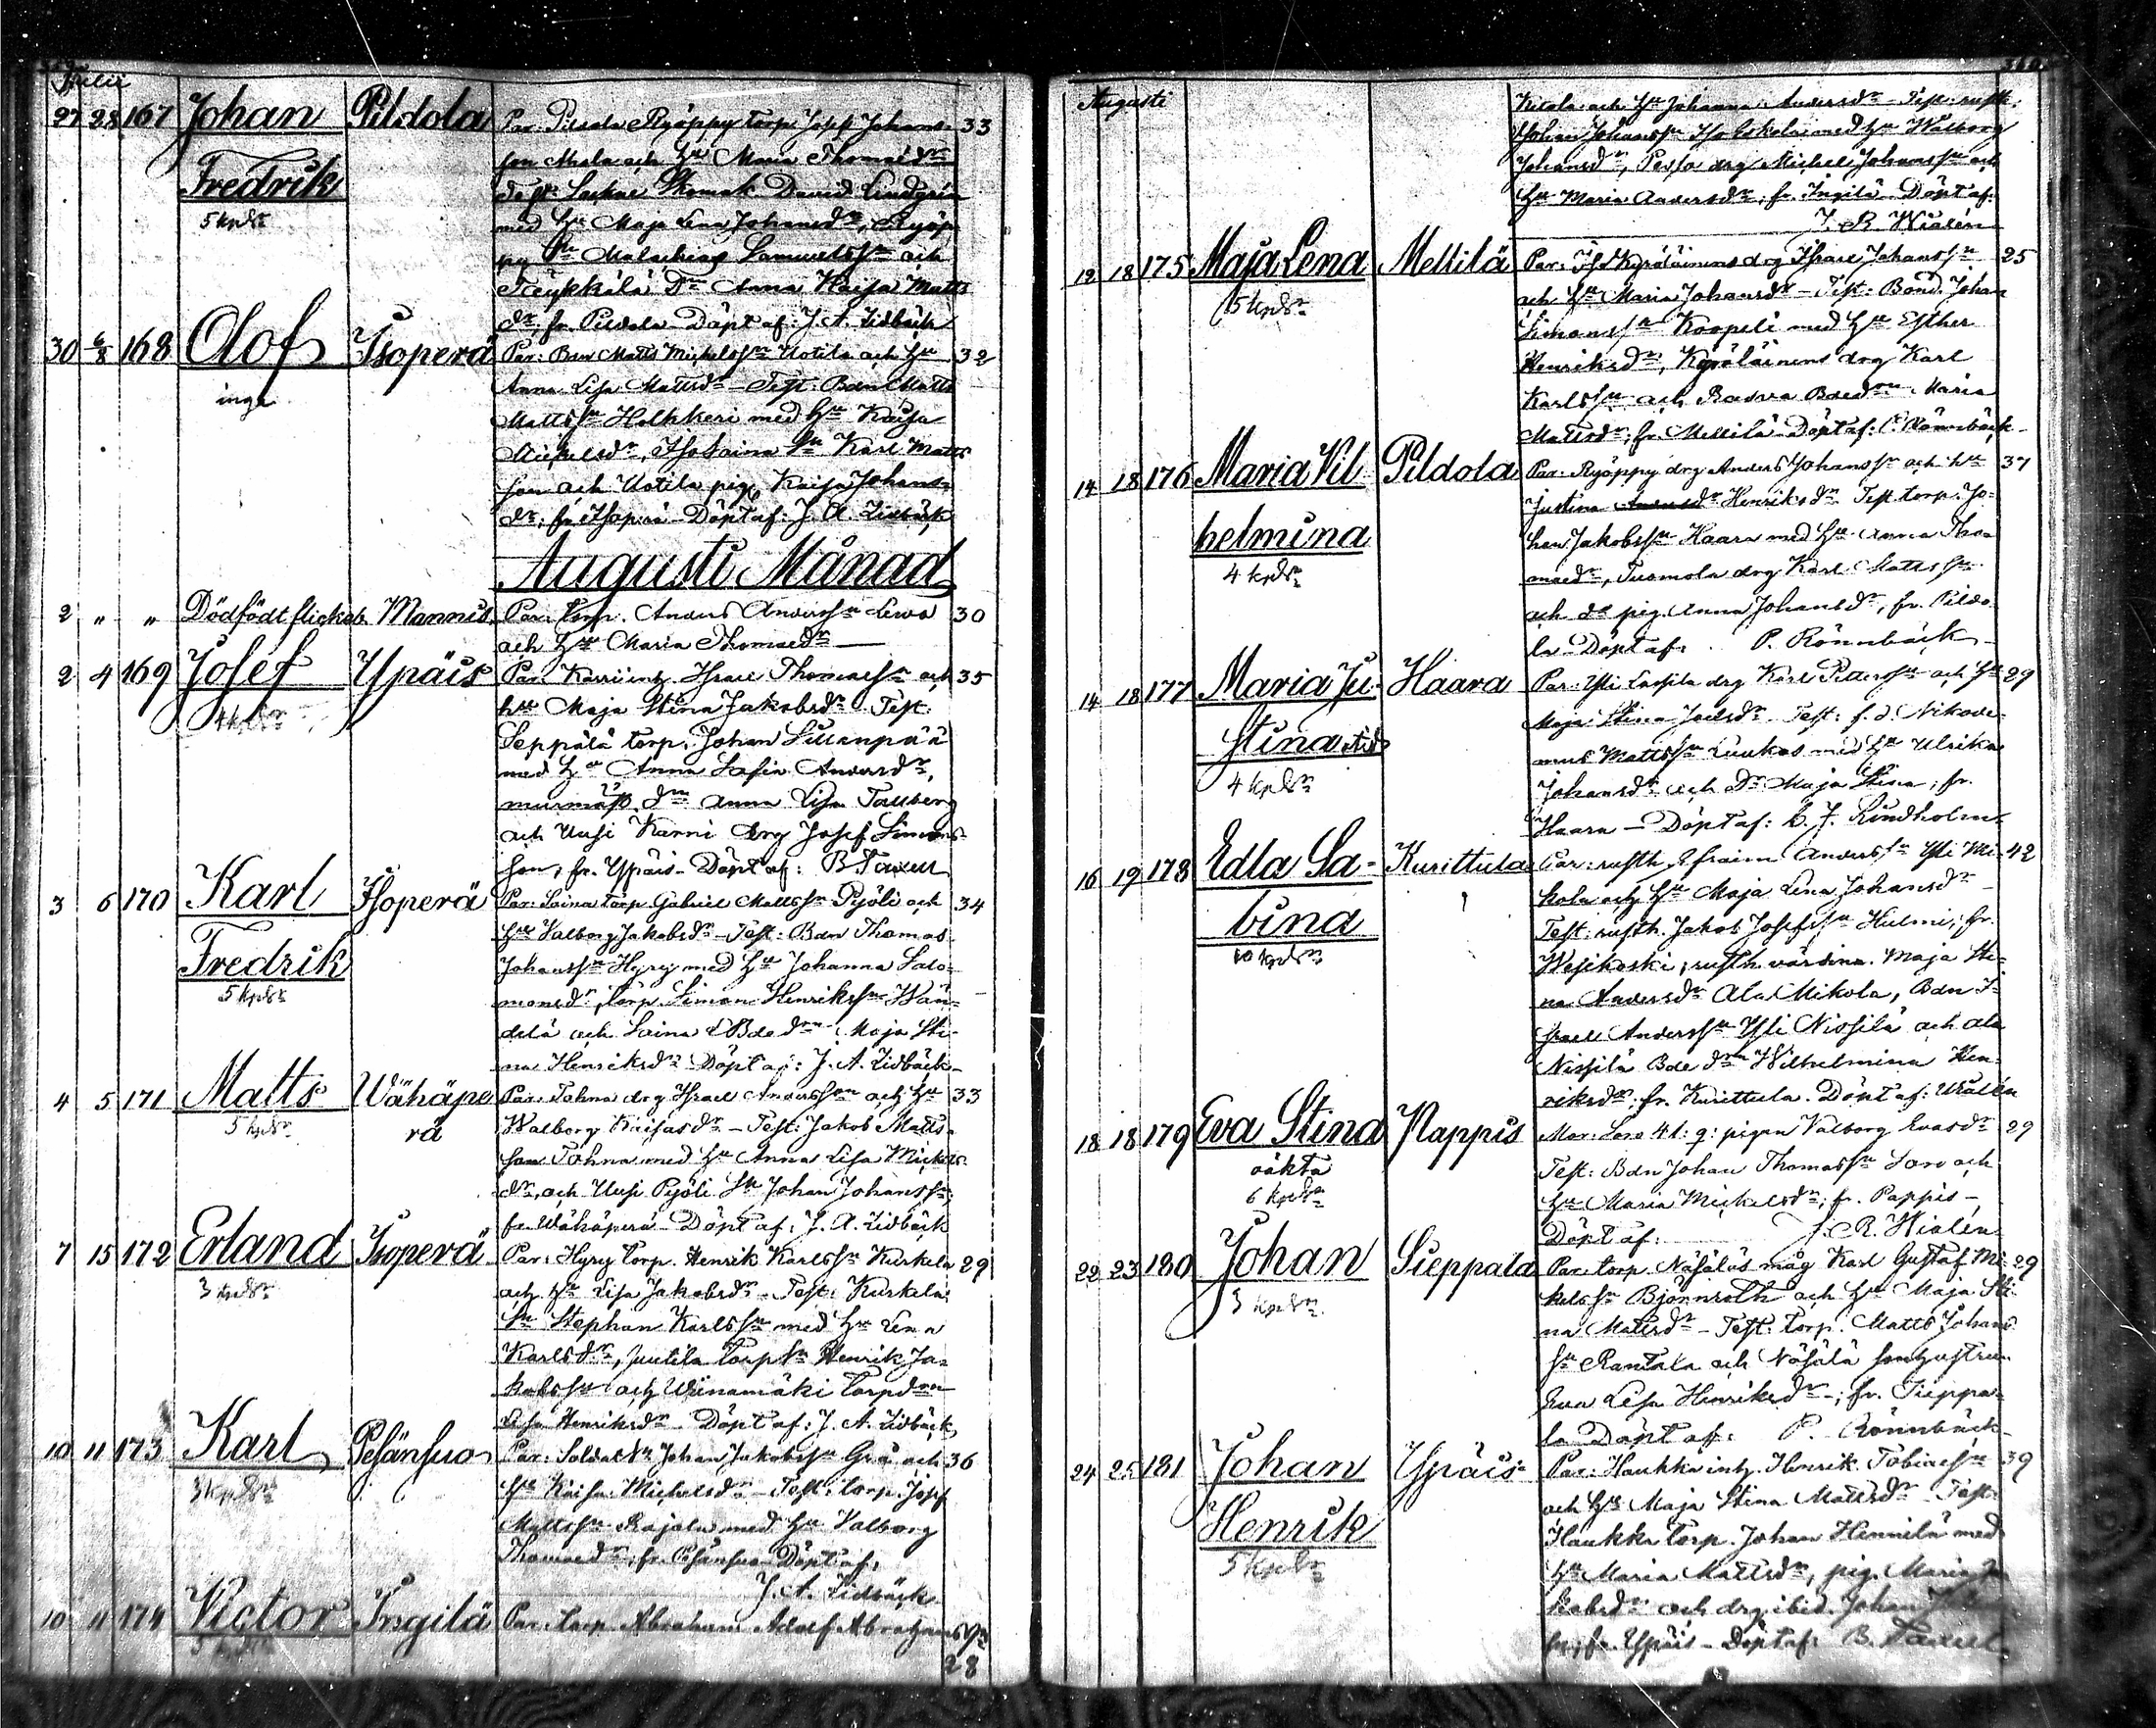 Julii
27 28 167 Johan Pildola Par: Pildola Ryöppy torp. Josef Johans- 33
Fredrik son och Hu Maria Thomasdr
5 kpdr Test: Skomak. David Lindgrén
med Hu Maja Lena Johansdr, Ryöp
py Sn Malachias Samuelssn och
Dr Anna Kaisa Matts
dr, fr. Pildola Döpt af: J. A. Lidbäck
30 6/8 168 Olof Isoperä Par: Bdn Matts Michelssn Uotila och Hu 32
Anna Lisa Mattsdr – Test: Bdn Matts
inga Mattssn med Hu Kaisa
Michelsdr, Sn Karl Matts
son och Uotila pig. Kaisa Johans
dr, fr. Isoperä – Döpt af: J. A. Lidbäck
Augusti Månad
2 " " Dödfödt flickeb. Mannis Par: torp. Anders Anderssn Lewo 30
och Hu Maria Thomasdr
2 4 169 Josef Ypäis Par: Karri inh. Israel Thomassn och 35
hu Maja Stina Jakobsdr Test:
Seppälä torp. Johan Sillanpää
med Hu Anna Sofia Andersdr,
dr Anna Lisa Tallberg
och Uusi Karri drg Josef Simons-
son, fr. Ypäis – Döpt af: B. Taxell
3 6 170 Karl Isoperä Par: Laina torp. Gabriel Mattssn Pyöli och 34
Hu Valborg Jakobsdr – Test: Bdn Thomas
Fredrik Johanssn Hyry med Hu Johanna Salo-
5 kpdr monsdr, torp. Simon Henrikssn Wän-
telä och Laina Bde dr Maja Sti-
na Henriksdr Döpt af: J. A. Lidbäck
4 5 171 Matts Wähäpe Par: Tohna drg Israel Anderssn och Hu 33
5 kpdr rä Walborg Kaisasdr – Test: Jakob Matts-
son Tohna med Hu Anna Lisa Michels
dr, och Uusi Pyöli Sn Johan Johanssn,
fr. Wähäperä – Döpt af: J. A. Lidbäck
7 15 172 Erland Isoperä Par: Hyry torp. Henrik Karlssn Kurkela 29
3 kpdr och Hu Lisa Jakobsdr – Test: Kurkela
Sn Stephan Karlssn med Hu Lena
Karlsdr, Juutila torp Sn Henrik Ja-
kobssn och Weinamäki torp dr
Lisa Henriksdr – Döpt af: J. A. Lidbäck
10 11 173 Karl Pesänsuo Par: Soldat Johan Jakobssn Grå och 36
3 kpdr Hu Kaisa Michelsdr – Test: torp. Josef
Mattssn Rajala med Hu Valborg
Thomasdr, fr. Pesänsuo Döpt af:
J. A. Lidbäck
10 11 174 Victor Ingilä Par: torp. Abraham Adolf Abrahamssn
28
Augusti
och Hu Johanna Andersdr – Test: rusth.
Johan Johanssn med Hu Walborg
Johansdr, drg Michel Johanssn och
Hu Maria Andersdr, fr. Ingilä – Döpt af:
J. R. Wialén
12 18 175 Maja Lena Mellilä Par: Kyröläinens drg Israel Johanssn 25
5 kpdr och Hu Maria Johansdr – Test: Bond. Johan
Simonssn Koopeli med Hu Esther
Henriksdr, Kyröläinens drg Karl
Karlssn och Rasva Bdedr Maria
Mattsdr, fr. Mellilä Döpt af: P. Rönnbäck
14 18 176 Maria Vil- Pildola Par: Ryöppy drg Anders Johanssn och hu 37
Justina Andersdr Henriksdr Test: torp. Jo-
helmina han Jakobssn Haara med Hu Anna Tho-
4 kpdr masdr, Tuomola drg Karl Mattssn
och do pig. Anna Johansdr, fr. Pildo-
la – Döpt af: P. Rönnbäck
14 18 177 Maria Ju- Haara Par: Yli Lassila drg Karl Petterssn och Hu 29
stina Maja Stina Joelsdr Test: f. d. Nikode-
4 kpdr mus Mattssn Luukas med Hu Ulrika
Johansdr och Dr Maja Stina, fr.
Haara – Döpt af: C. J. Lindholm
16 19 178 Edla Sa- Kurittula Par: rusth. Efraim Anderssn Yli Mi- 42
kola och Hu Maja Lena Johansdr
bina Test: rusth. Jakob Josefssn Hulmi, fr.
10 kpdr Wesikoski, rusth. värdina Maja Sti-
na Andersdr Ala Mikola, Bdn I-
srael Anderssn Yli Nissilä och Ala
Nissilä Bde dr Wilhelmina Hen-
riksdr, fr. Kurittula. Döpt af: Wialén
18 18 179 Eva Stina Pappis Mor: 41: g: pigan Valborg Evasdr 29
oäkta Test: Bdn Johan Thomassn och
6 kpdr Hu Maria Michelsdr, fr. Pappis –
Döpt af: J. R. Wialén
22 23 180 Johan Sieppala Par: torp. Näsäläs måg Karl Gustaf Mi- 29
3 kpdr kelssn Björnroth och Hu Maja Sti-
na Mattsdr – Test: torp. Matts Johans
sn Rantala och Näsälä sonhustrun
Eva Lisa Henriksdr, fr. Sieppa-
la Döpt af: P. Rönnbäck
24 25 181 Johan Ypäis Par: Haukka inh. Henrik Tobiassn 39
och Hu Maja Stina Mattsdr – Test:
Henrik Haukka torp. Johan Hennilä med
5 kpdr Hu Maria Mattsdr, pig. Maria Ja-
kobsdr och drg ibid. Johan
fr. Ypäis – Döpt af: B. Taxell